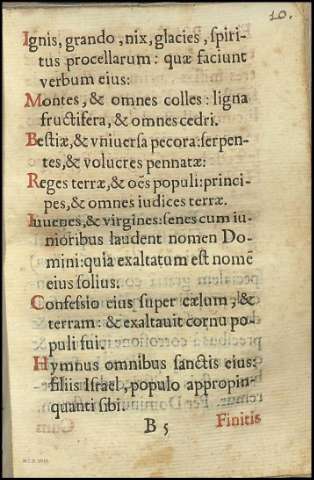 10.
Ignis, grando, nix, glacies, spiri-
tus procellarum: quæ faciunt
verbum eius:
Montes, & omnes colles: ligna
fructifera, & omnes cedri.
Bestiæ, & vniuersa pecora: serpen-
tes, & volucres pennatæ:
Reges terræ, & oẽs populi: princi-
pes, & omnes iudices terræ.
Iuuenes, & virgines: senes cum iu-
nioribus laudent nomen Do-
mini: quia exaltatum est nomẽ
eius solius.
Confessio eius super cælum, &
terram: & exaltauit cornu po-
puli sui.
Hymnus omnibus sanctis eius:
filiis Israel, populo appropin-
quanti sibi.
B 5 Finitis